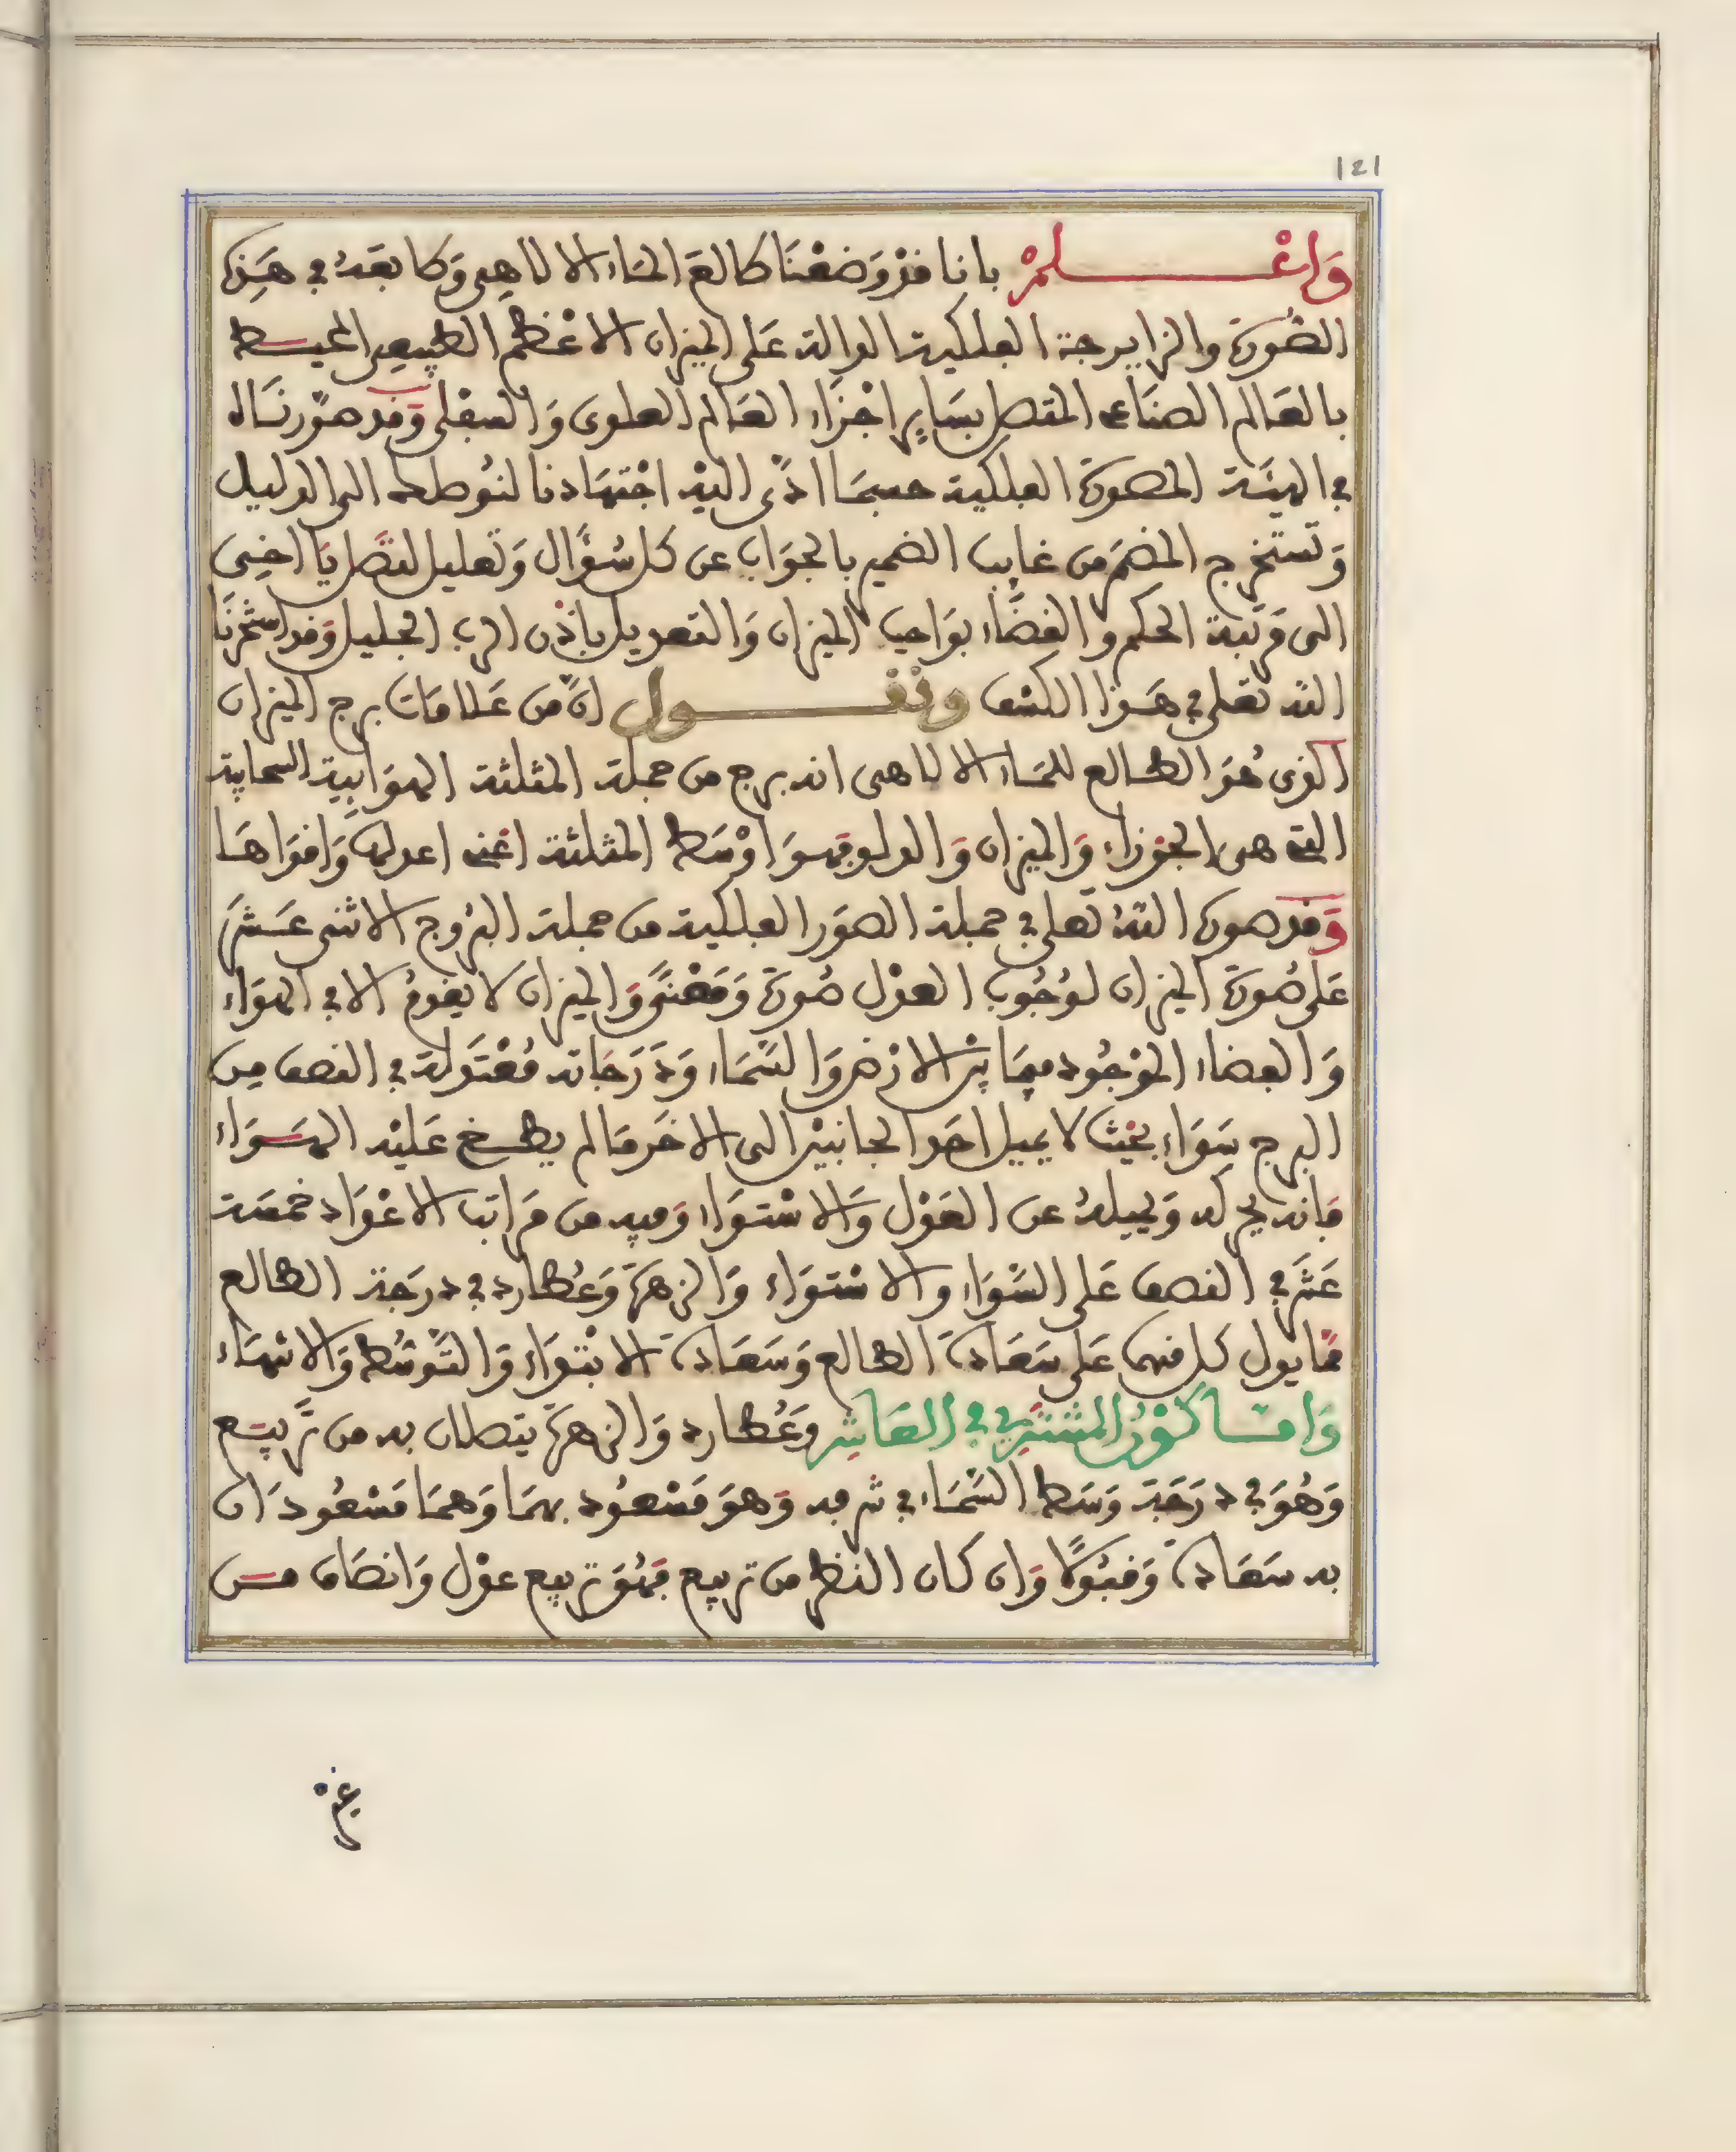 121
وَاعْلَمْ بانا قد وَضعْنَا طالع الماء الالاهي وَطابعَهُ في هَذِه
الصُّورَة والزايرجة الفلكية الدالة عَلى الميزان الاعْظم الطبيعي المحيط
بالعَالم الصنَاعي المتصل بسَاير اجْزَاء العَالم العلوى وَالسفلى وَقد صوّرنَاه
في الهيئَة المصورَة الفلكية حسبمَا ادّى اليْه اجْتهَادنا لنُوصله الى الدليل
وَتستخرج المضمَر من غايب الضمير بالجوَاب عن كل سُؤَال وَتعليل لتصَل يَا اخِى
الى مَرتبَة الحكم والقضَاء بوَاجب الميزان وَالتعديل باذْن الرب الجليل وَقد استخرنَا
الله تعلى في هَذا الكشف ونقول انّ من عَلامَات برج الميزان
الذى هُوَ الطالع للمَاء الالاهى انه برج من جملة المثلثة الهوَايية السحابية
التى هى الجوْزاء وَالميزان وَالدلو فهوَ اوْسَط المثلثة اعْنى اعدلها وَاقوَاهَا
وَقد صورَ اللهُ تعلى في جملة الصوَر الفلكية من جملة البرُوج الاثنى عَشَر
عَلى صُورَة الميزان لوُجُوب العدْل صُورَة وَمَعْنىً وَالميزان لا يقومُ الا في الهوَاء
وَالفضاء الموْجُود فيمَا بيْن الارْض وَالسّمَاء وَدَرَجَاته مُعْتَدلة في النصف من
البرج سَوَاء بحيْث لا يميل احَد الجانبيْن الى الاخَر مَا لم يطخ عَليْه الهَوَاء
فانه يحركه وَيميلهُ عن العَدْل وَالاسْتوَاء وَفيه من مَرَاتب الاعْدَاد خمسَة
عَشَر في النصف عَلى السّوَاء والاسْتوَاء وَالزهرَة وَعُطارد في درَجَة الطالع
فما يدل كل منهما عَلى سَعَادَة الطالع وَسَعَادَة الابْتدَاء وَالتّوسّط وَالانتهَاء
وَامّا كوْن المشترى في العَاشر وَعُطارد وَالزهرَة يتصلان به من تَربيع
وَهُوَ في درَجَة وَسَط السّمَاء في شرفه وَهوَ مَسْعُود بهمَا وَهمَا مَسْعُودَان
به سَعَادَة وَقبُولا وَان كان النظر من تربيع فهُوَ تربيع عدْل وَانصَاف من